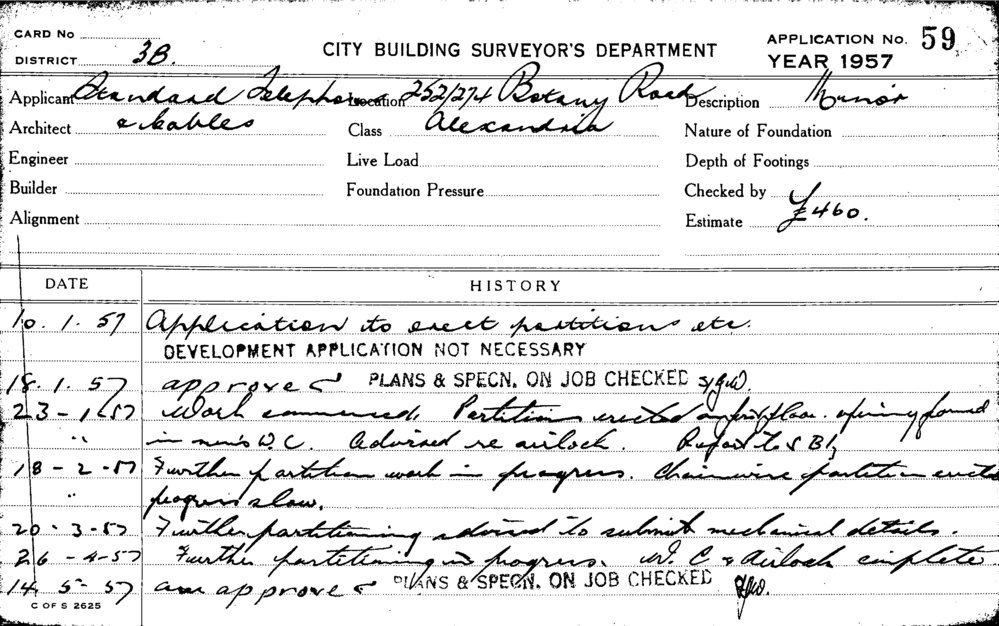 CARD No
DISTRICT 3B.
CITY BUILDING SURVEYOR'S DEPARTMENT
APPLICATION No. 59
YEAR 1957
Applicant Standard Telephones Location 252/274 Botany Road Description Minor
Architect & Cables Class Alexandria Nature of Foundation
Engineer Live Load Depth of Footings
Builder Foundation Pressure Checked by
Alignment Estimate £460.
DATE HISTORY
10. 1. 57 Application to erect partitions etc.
DEVELOPMENT APPLICATION NOT NECESSARY
18. 1. 57 approved PLANS & SPECN. ON JOB CHECKED
23-1-57 Work commenced. Partition erected on first floor. opening formed
" in men's W.C. Advised re airlock. Report to S B I
18-2-57 Further partition work in progress. Chainwire partition erected
" progress slow.
20-3-57 Further partitioning advised to submit mechanical details.
26-4-57 Further partitioning in progress. W.C & Airlock complete
14. 5-57 am approved PLANS & SPECN. ON JOB CHECKED
C OF S 2625